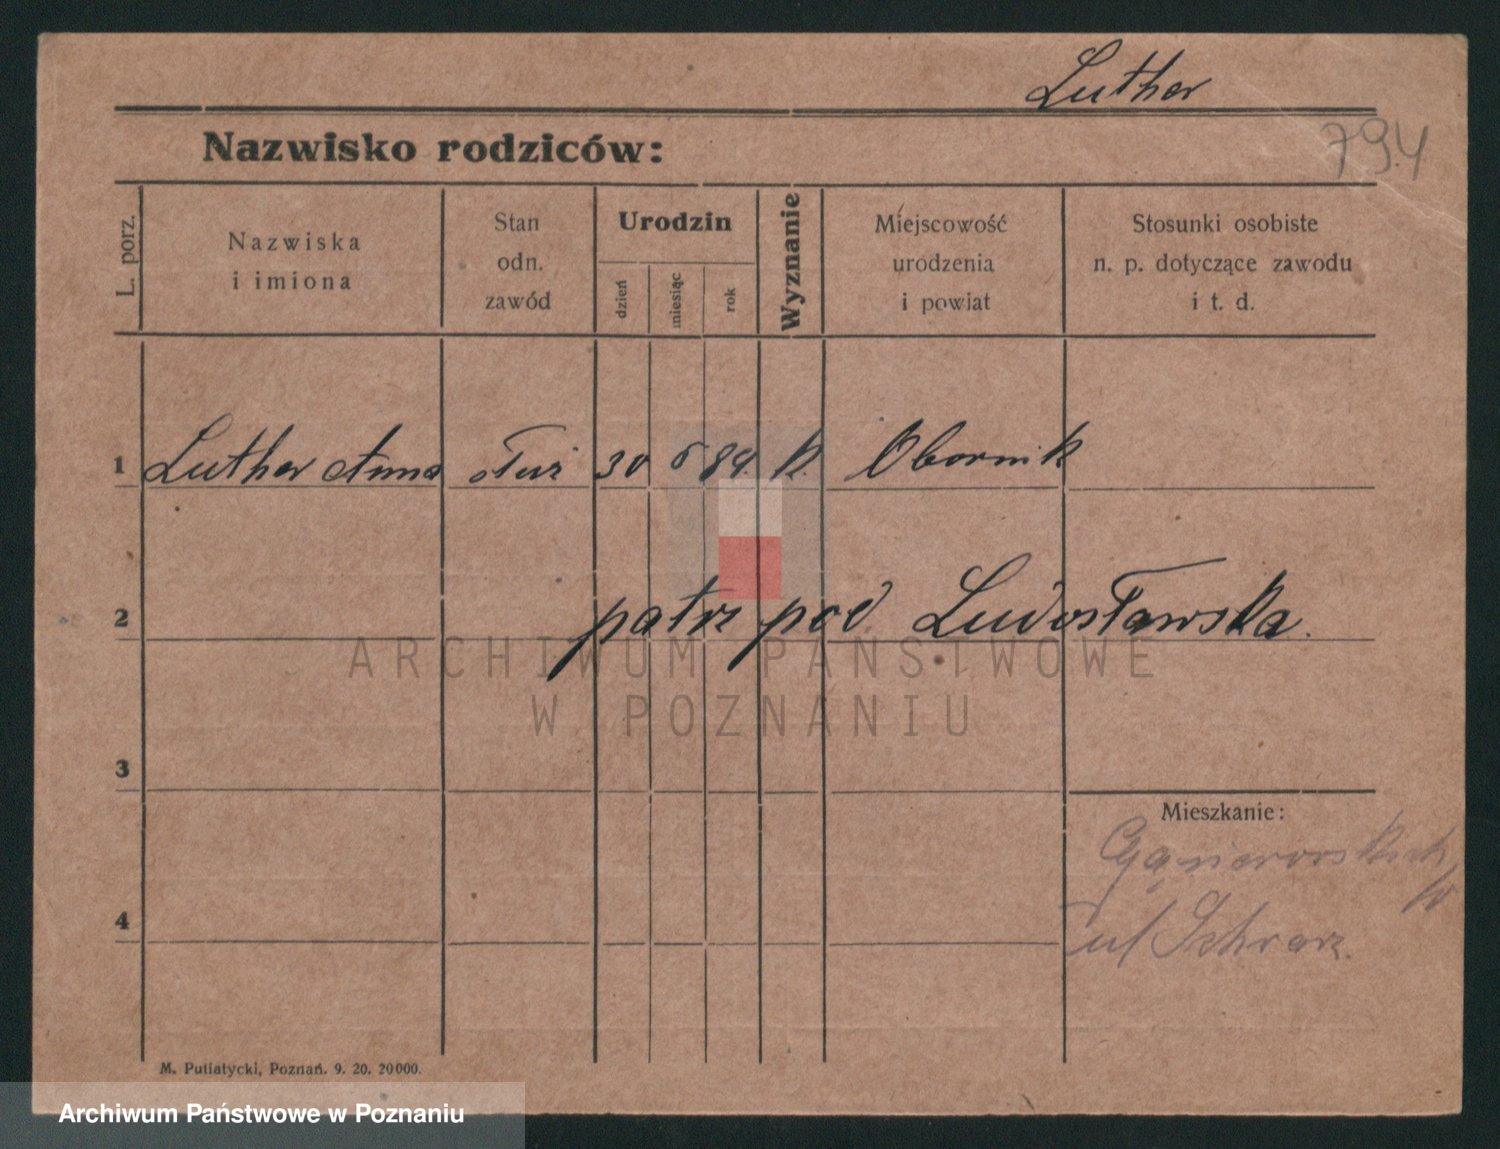 Luther
794
Nazwisko rodziców:
L. porz.
Nazwiska
i imiona
Stan
odn.
zawód
Urodzin
dzień
miesiąc
rok
Wyznanie
Miejscowość
urodzenia
i powiat
Stosunki osobiste
n. p. dotyczące zawodu
i t. d.
1 Luther Anna służ 30 6 84. k. Obornik
2 patrz pod Ludosławska.
ARCHIWUM PAŃSTWOWE
W POZNANIU
3
Mieszkanie:
4
ul
M. Putiatycki, Poznań. 9. 20. 20000.
Archiwum Państwowe w Poznaniu